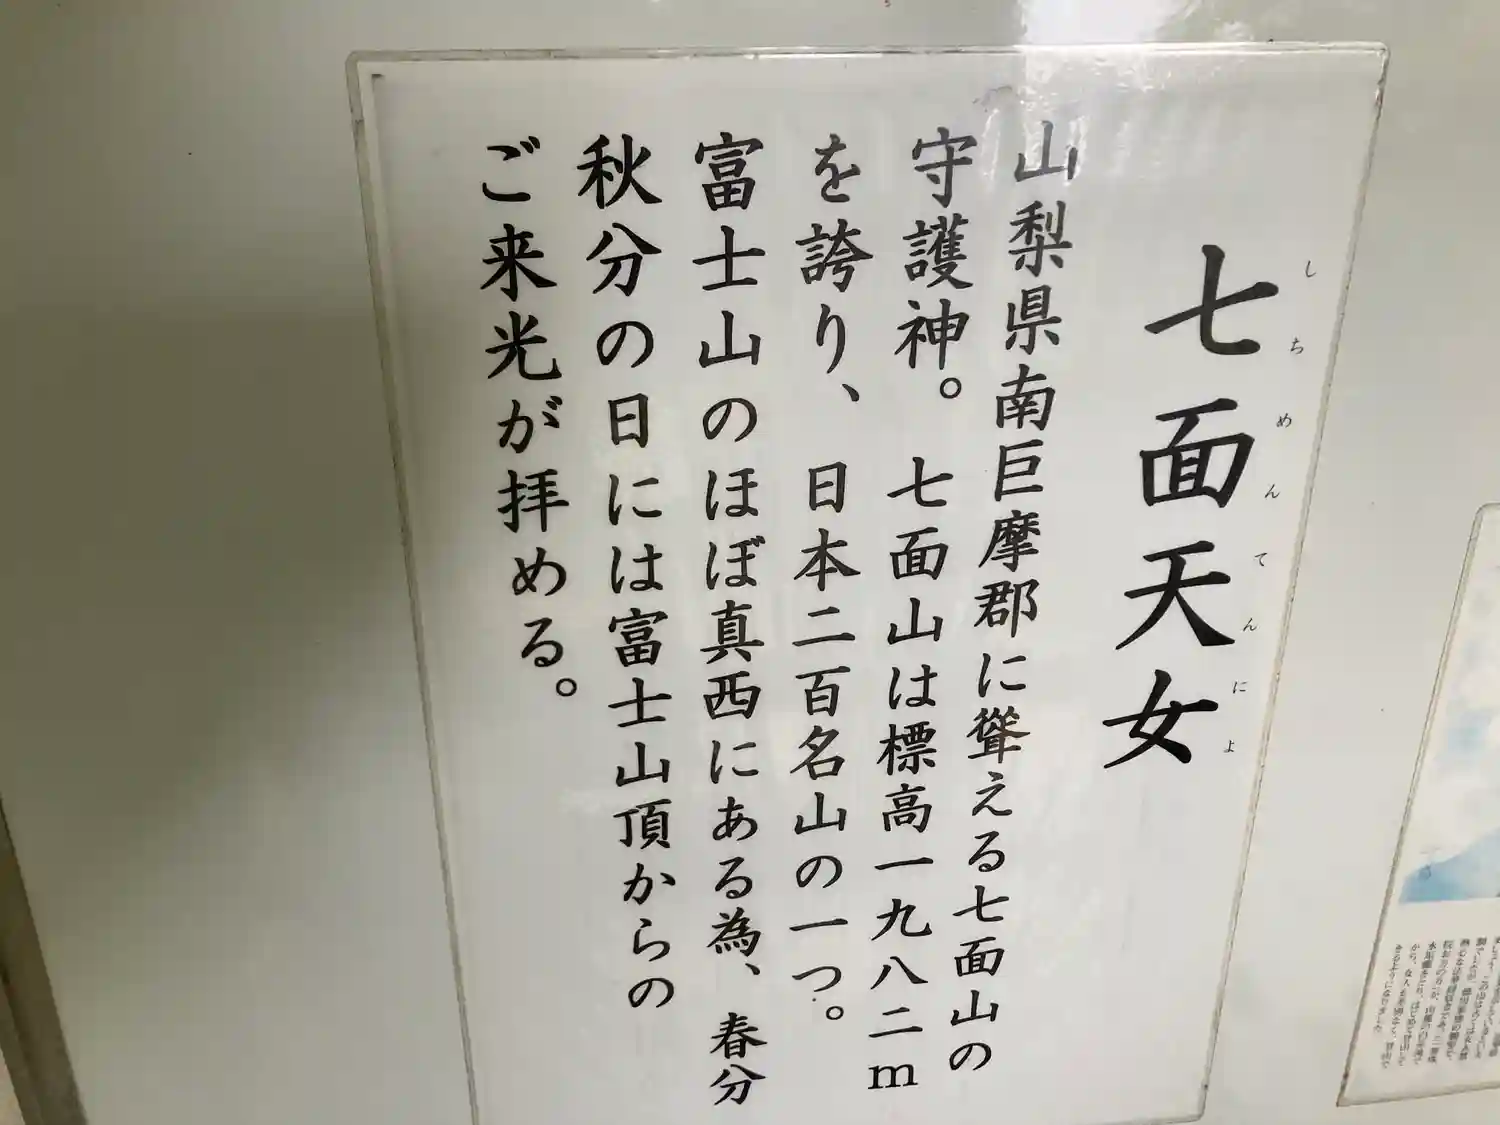 七面天女
しちめんてんによ
山梨県南巨摩郡に聳える七面山の
守護神。七面山は標高一九八二m
を誇り、日本二百名山の一つ。
富士山のほぼ真西にある為、春分
秋分の日には富士山頂からの
ご来光が拝める。